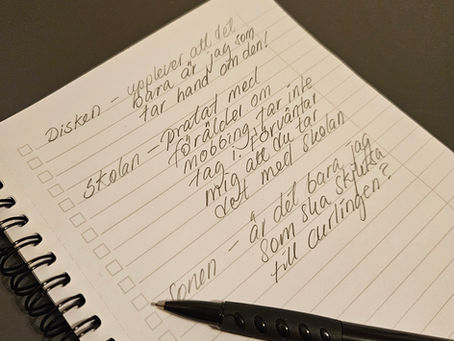 Disken – upplever att det
bara är jag som
tar hand om den!
Skolan – pratat med
förälder om
mobbing tar inte
tag i. Förväntar
mig att du tar
det med skolan
Sonen – är det bara jag
som ska skjutsa
till curlingen?